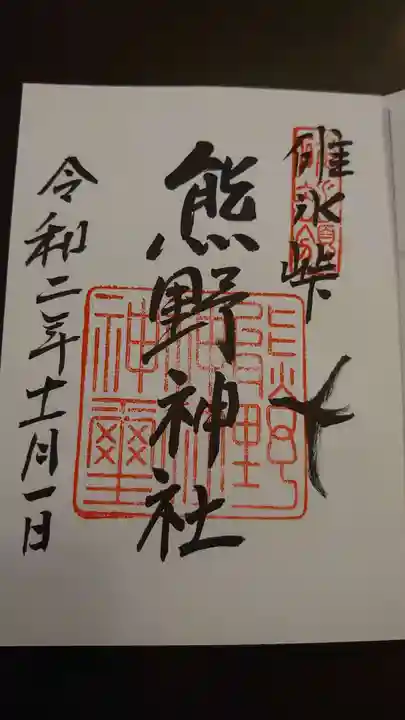 碓氷峠
熊野神社
令和二年十一月一日
熊野神社神璽